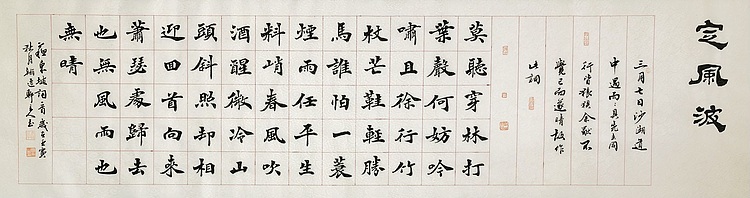 定風波
三月七日沙湖道
中遇雨雨具先去同
行皆狼狽余獨不
覺已而遂晴故作
此詞
莫聽穿林打
葉聲何妨吟
嘯且徐行竹
杖芒鞋輕勝
馬誰怕一蓑
煙雨任平生
料峭春風吹
酒醒微冷山
頭斜照却相
迎回首向來
蕭瑟處歸去
也無風雨也
無晴
蘇東坡詞一首歲在壬寅